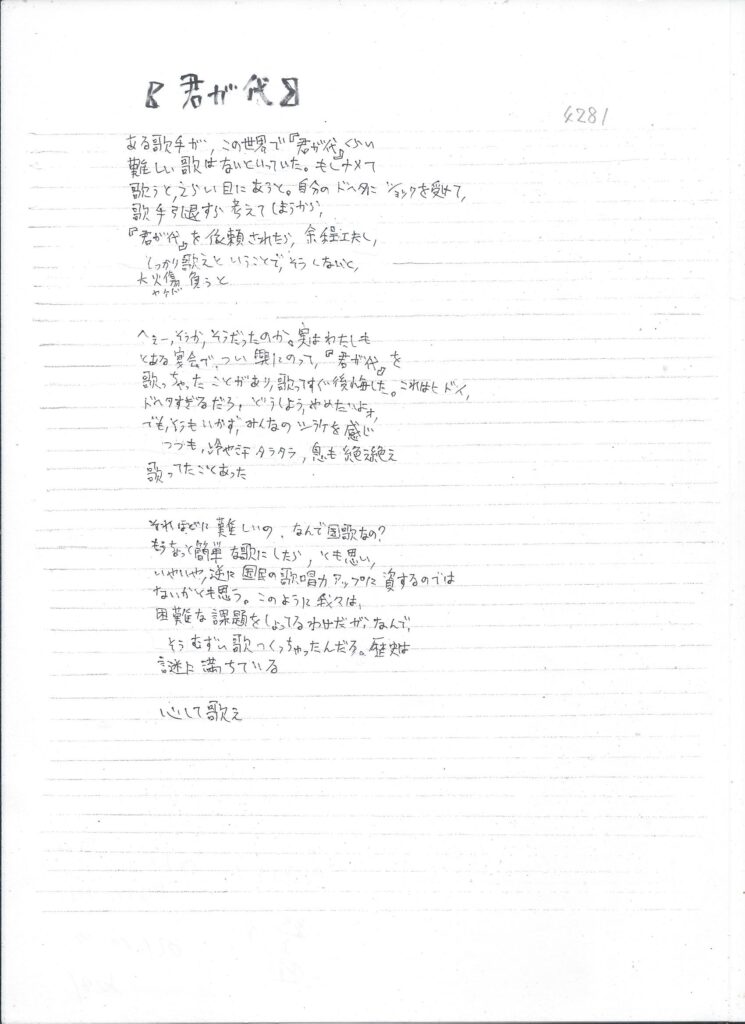 【君が代】
4281
ある歌手が、この世界で『君が代』くらい
難しい歌はないといっていた。もしナメて
歌うと、えらい目にあうと。自分のドヘタに ショックを受けて、
歌手引退すら考えてしまうから、
『君が代』を依頼されたら、余程工夫し、
しっかり歌えということで、そうしないと、
大火傷負うと
ヤケド
へぇー、そうか、そうだったのか。実はわたしも
とある宴会で、つい興にのって、『君が代』を
歌っちゃったことがあり、歌ってすぐ後悔した。これはヒドイ、
ドヘタすぎるだろ、どうしよう、やめたいよォ、
でも、そうもいかず、みんなのシラケを感じ
つつも、冷や汗タラタラ、息も絶え絶え
歌ってたことあった
それほどに難しいの、なんで国歌なの?
もうちょっと簡単な歌にしたら、とも思い、
いやいや、逆に国民の歌唱力アップに資するのでは
ないかとも思う。このように我々は、
困難な課題をしょってるわけだが、なんで、
そうむずい歌つくっちゃったんだろ。歴史は
謎に満ちている
心して歌え